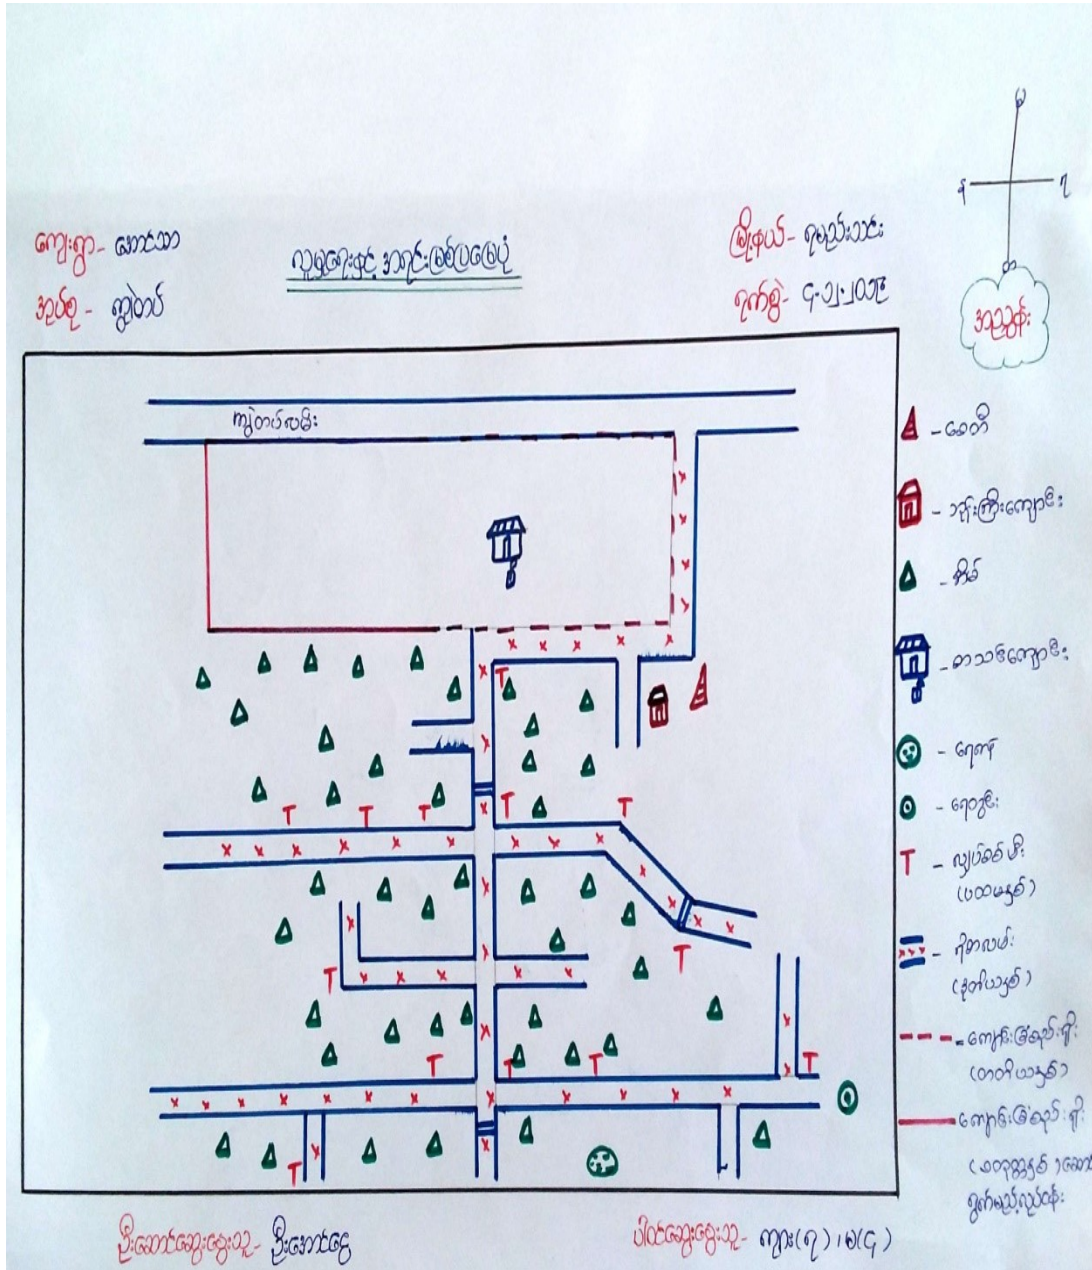 မ
န
ရ
တ
အညွှန်း
ကျေးရွာ- အောင်သာ
အုပ်စု - ကျွဲတပ်
လူမှုရေးနှင့် အရင်းမြစ်ပြမြေပုံ
မြို့နယ်- ရမည်းသင်း
ရက်စွဲ- ၄.၁၂.၂၀၁၉
ကျွဲတပ်လမ်း
-စေတီ
- ဘုန်းကြီးကျောင်း
- အိမ်
-စာသင်ကျောင်း
- ရေကန်
- ရေတွင်း
- လျှပ်စစ်မီး
(ပထမနှစ်)
- ရွာလမ်း
(ဒုတိယနှစ်)
-ကျောင်းခြံစည်းရိုး
(တတိယနှစ်)
ကျောင်းခြံစည်းရိုး
(စတုတ္ထနှစ်)ဆောင်
ရွက်မည့်လုပ်ငန်း
ဦးဆောင်ဆွေးနွေးသူ- ဦးအောင်ငွေ
ပါဝင်ဆွေးနွေးသူ- ကျား(၇)၊မ(၄)